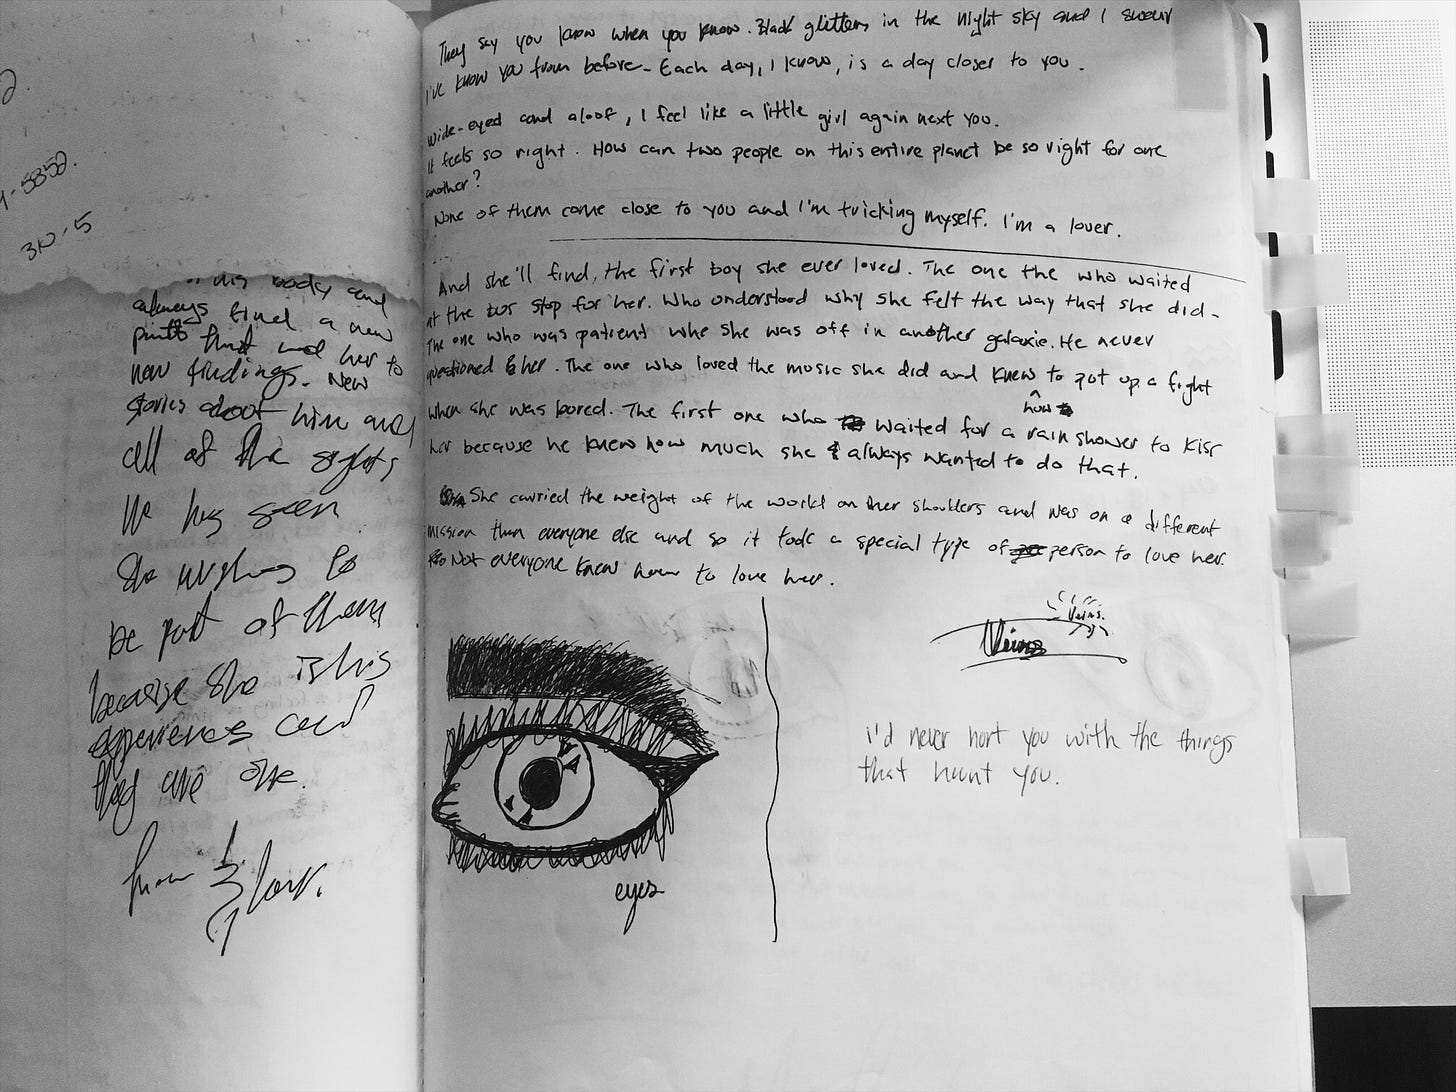 4-5858.
310-5
his body and
always find a new
points that led her to
new findings. New
stories about him and
all of the sights
He has seen
She wishes to
be part of them
because she is his
experiences and
they are one.
from
They say you know when you know. Black glitters in the night sky and I swear
I've know you from before. Each day, I know, is a day closer to you.
Wide-eyed and aloof, I feel like a little girl again next you.
It feels so right. How can two people on this entire planet be so right for one
another?
None of them come close to you and I'm tricking myself. I'm a lover.
And she'll find, the first boy she ever loved. The one the who waited
at the bus stop for her. Who understood why she felt the way that she did.
The one who was patient whe she was off in another galaxie. He never
questioned her. The one who loved the music she did and knew to put up a fight
how
when she was bored. The first one who waited for a rain shower to kiss
her because he knew how much she always wanted to do that.
She carried the weight of the world on her shoulders and was on a different
mission than everyone else and so it took a special type of person to love her.
Not everyone knew how to love her.
Veins.
Veins
i'd never hurt you with the things
that haunt you.
eyes